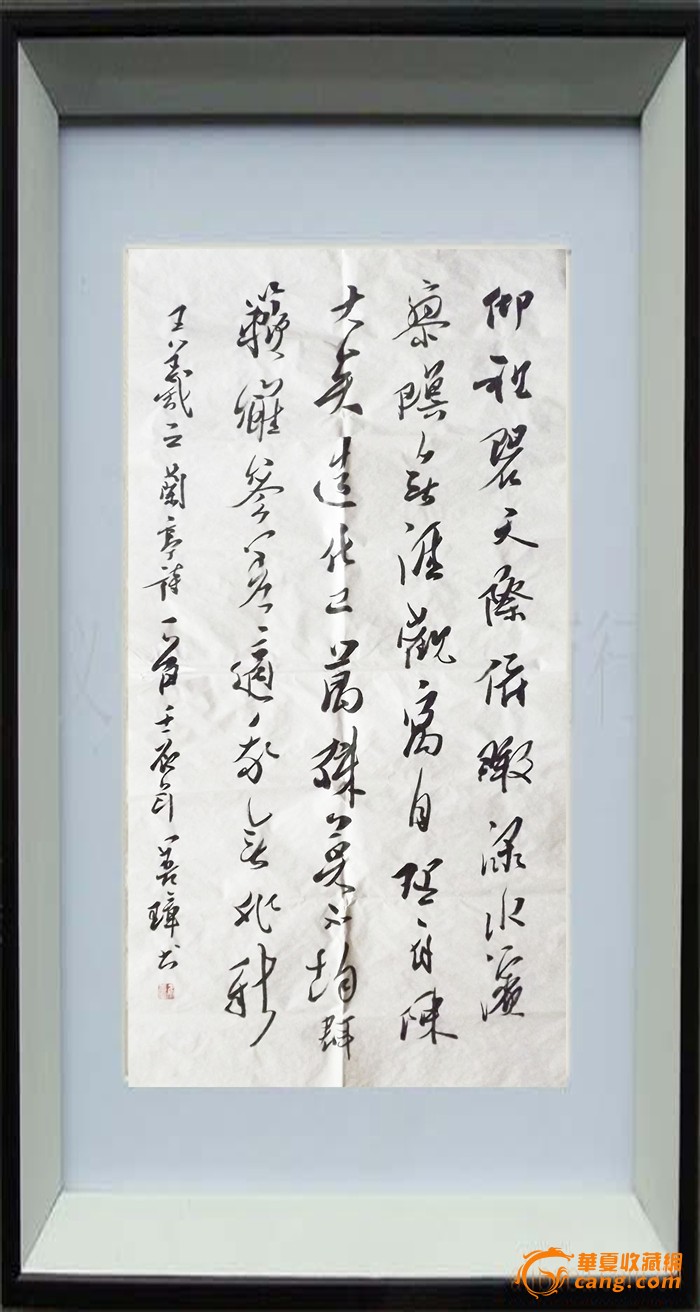 仰視碧天際俯瞰渌水濱
寥無涯觀寓目理自陳
大矣造化工萬殊莫不均群
籟雖參差適我無非新
王羲之蘭亭詩一首壬辰年善璋书
華夏收藏網
cang.com